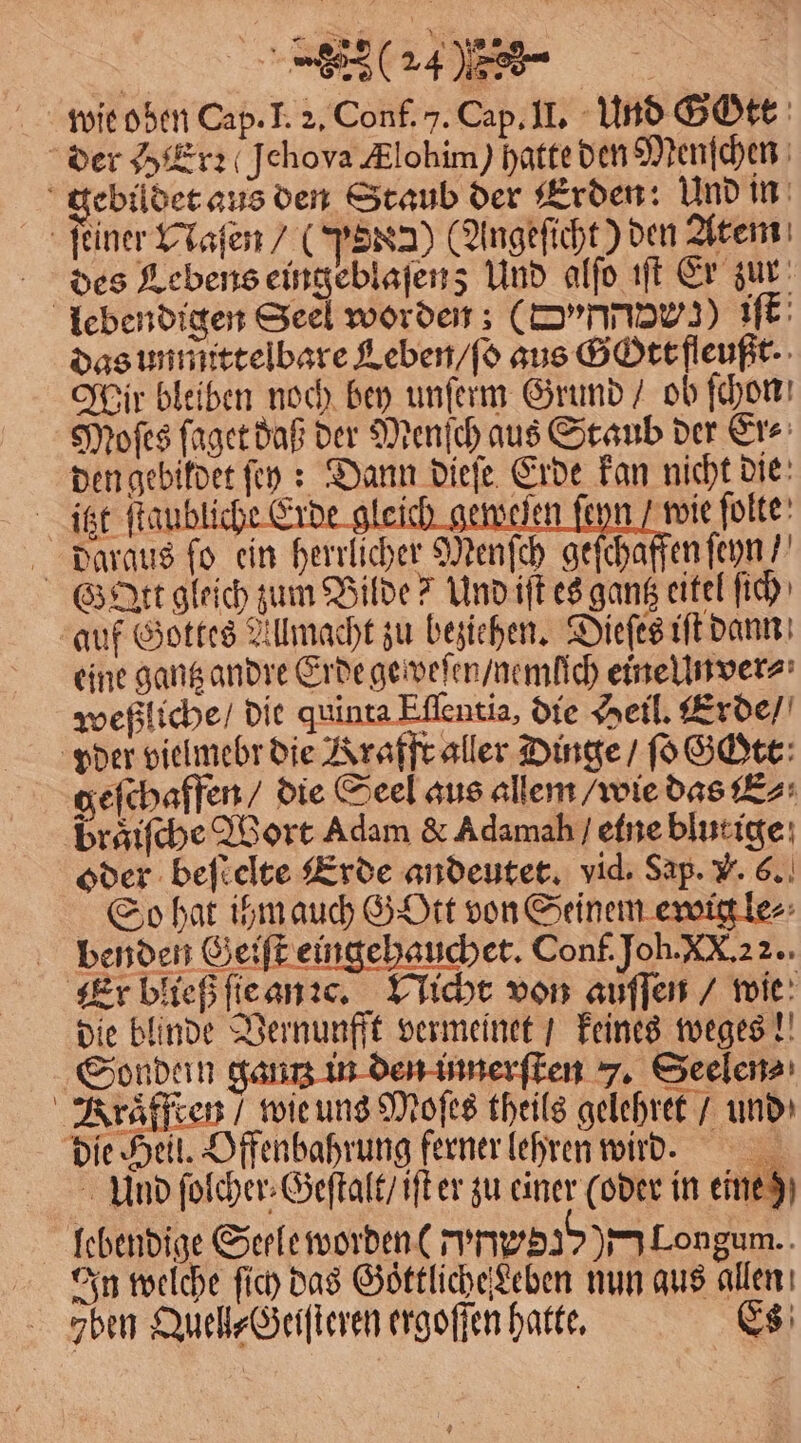 (24)
wie oben Cap. I. 2. Conf. 7. Cap. II. Und GOtt
der HErꝛ (Jehova Ælohim) hatte den Menſchen
gebildet aus den Staub der Erden: Und in
ſeiner Naſen / (באפיו) (Angeſicht) den Atem
des Lebens eingeblaſen; Und alſo iſt Er zur
lebendigen Seel worden; (נשמתחיים) iſt
das unmittelbare Leben / ſo aus GOtt fleußt.
Wir bleiben noch bey unſerm Grund / ob ſchon
Moſes ſaget daß der Menſch aus Staub der Er⸗
den gebildet ſey: Dann dieſe Erde kan nicht die
itzt ſtaubliche Erde gleich geweſen ſeyn / wie ſolte
daraus ſo ein herrlicher Menſch geſchaffen ſeyn /
GOtt gleich zum Bilde? Und iſt es gantz eitel ſich
auf Gottes Allmacht zu beziehen. Dieſes iſt dann
eine gantz andre Erde geweſen / nemlich eine Unver⸗
weßliche / die quinta Eſſentia, die Heil. Erde /
oder vielmehr die Krafft aller Dinge / ſo GOtt
geſchaffen / die Seel aus allem / wie das E⸗
bräiſche Wort Adam & Adamah / eine blutige
oder beſeelte Erde andeutet. vid. Sap. V. 6.
So hat ihm auch GOtt von Seinem ewig le⸗
benden Geiſt eingehauchet. Conf. Joh. XX. 22.
Er bließ ſie an ꝛc. Nicht von auſſen / wie
die blinde Vernunfft vermeinet / keines weges!
Sondern gantz in den innerſten 7. Seelen⸗
Kräfften / wie uns Moſes theils gelehret / und
die Heil. Offenbahrung ferner lehren wird.
Und ſolcher⸗Geſtalt / iſt er zu einer (oder in eine)
lebendige Seele worden (לנפשחיה) ה Longum.
In welche ſich das Göttliche Leben nun aus allen
7ben Quell⸗Geiſteren ergoſſen hatte. Es